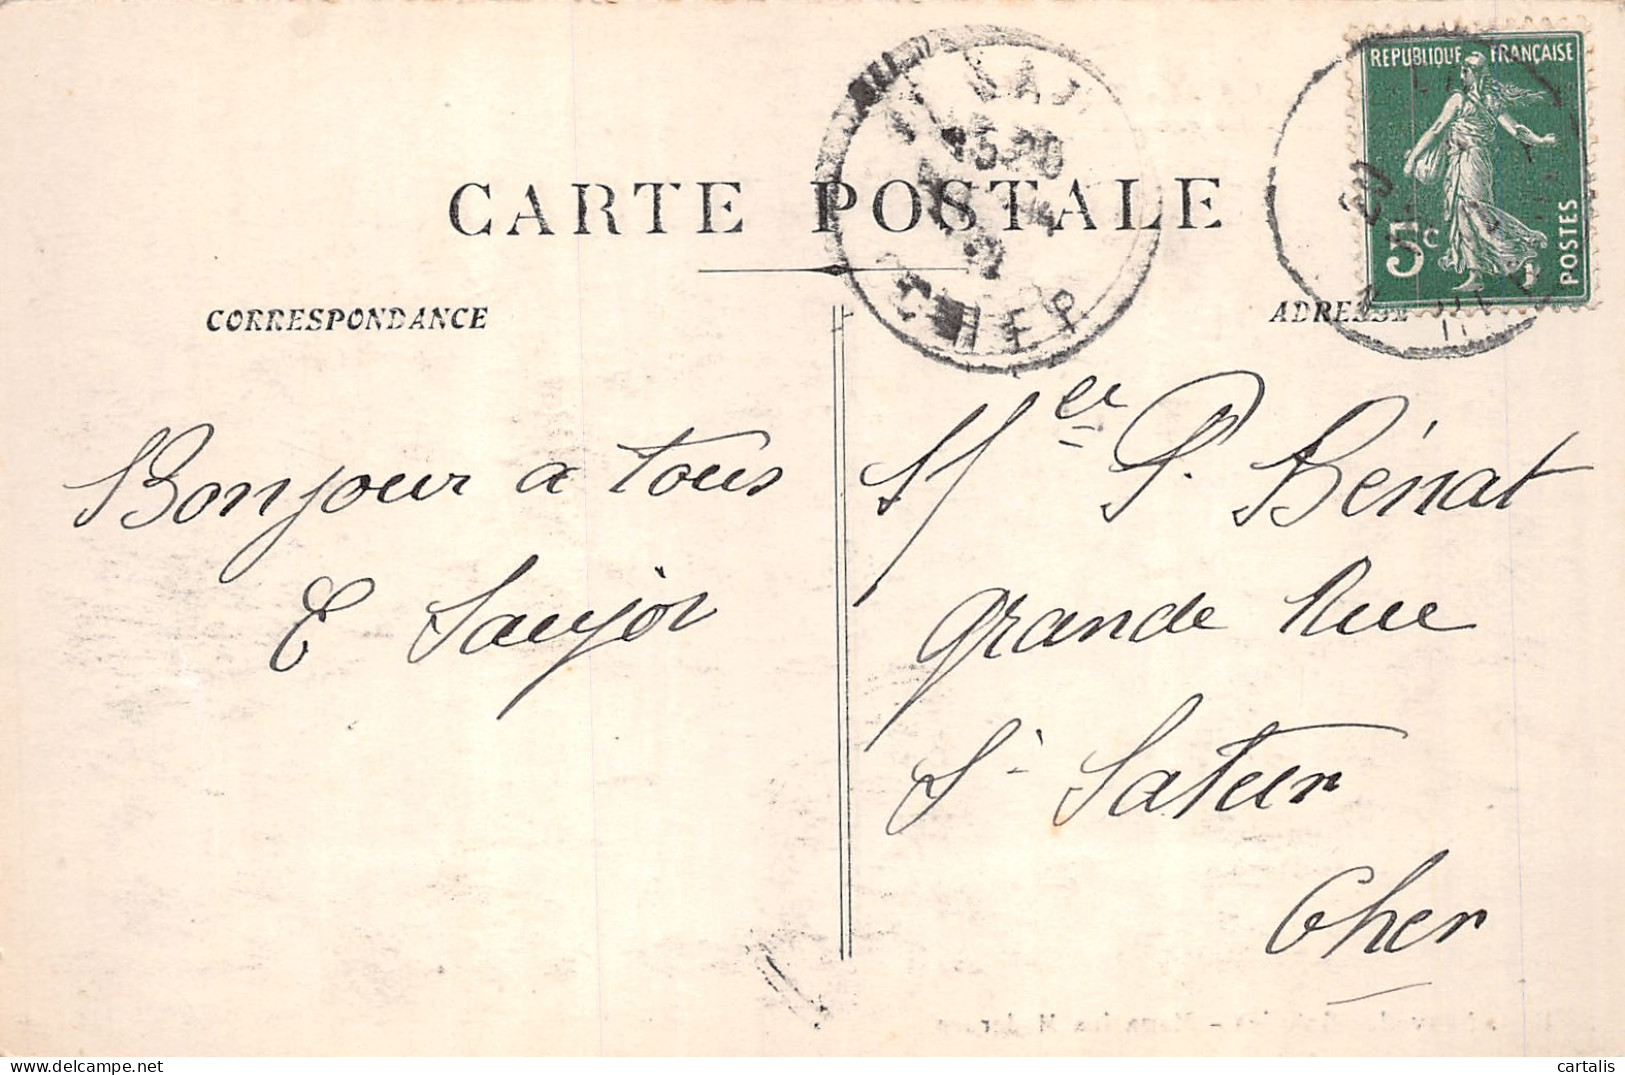 CARTE POSTALE
CORRESPONDANCE
ADRESSE
REPUBLIQUE FRANÇAISE
5c
POSTES
CHER
Bonjour a tous
E Saujot
Mer P. Bénat
Grande Rue
St Satur
Cher
cartalis